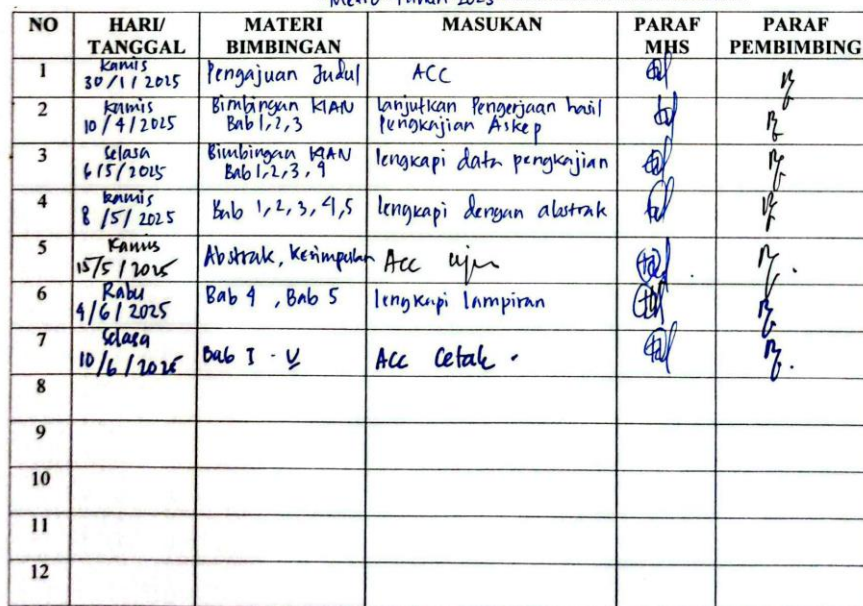 Metro Tahun 2025
NO HARI/ TANGGAL MATERI BIMBINGAN MASUKAN PARAF MHS PARAF PEMBIMBING
1 Kamis 30/1/2025 Pengajuan Judul ACC
2 Kamis 10/4/2025 Bimbingan KIAN Bab 1,2,3 Lanjutkan Pengerjaan hasil Pengkajian Askep
3 Selasa 6/5/2025 Bimbingan KIAN Bab 1,2,3,4 lengkapi data pengkajian
4 Kamis 8/5/2025 Bab 1,2,3,4,5 lengkapi dengan abstrak
5 Kamis 15/5/2025 Abstrak, Kesimpulan Acc ujian
6 Rabu 4/6/2025 Bab 4, Bab 5 lengkapi lampiran
7 Selasa 10/6/2025 Bab I - V Acc Cetak.
8
9
10
11
12